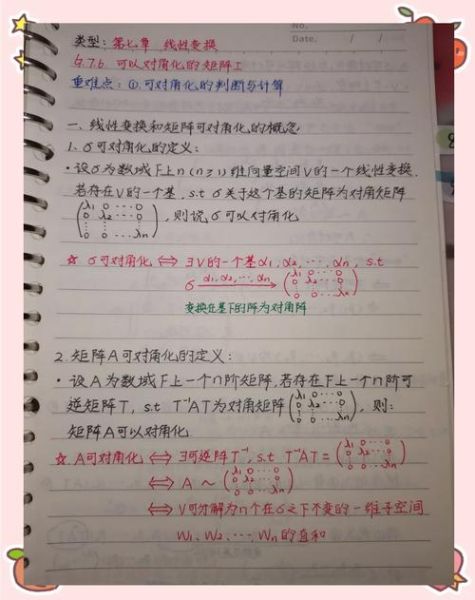 No.
Date. / /
类型: 第七章 线性变换
§7.6 可以对角化的矩阵I
重难点: ①.可对角化的判断与计算
一. 线性变换和矩阵可对角化的概念
1. σ可对角化的定义:
· 设σ为数域F上n(n≥1)维向量空间V的一个线性变换,
若存在V的一个基, s.t σ关于这个基的矩阵为对角矩阵
(λ1 0 ··· 0
0 λ2 ··· 0
⋮ ⋮ ⋮
0 0 ··· λn), 则说σ可以对角化
☆ σ可对角化 ⇔ ∃V的一个基α1, α2, ···, αn, s.t
σ —α1, α2, ···, αn→ (λ1 0 ··· 0
0 λ2 ··· 0
0 0 ··· λn)
变换在基下的阵为对角阵
2. 矩阵A可对角化的定义:
· 设A为数域F上一个n阶矩阵, 若存在F上一个n阶可
逆矩阵T, s.t T⁻¹AT为对角矩阵(λ1 0 ··· 0
0 λ2 ··· 0
0 0 ··· λn), 则:
矩阵A可以对角化
☆ A可对角化 ⇔ ∃可逆阵T⁻¹, s.t T⁻¹AT = (λ1 0 ··· 0
0 λ2 ··· 0
0 0 ··· λn)
⇔ A ~ (λ1 0 ··· 0
0 λ2 ··· 0
0 0 ··· λn)
⇔ V可分解为n个在σ之下不变的一维子空间
W1、W2、···, Wn的直和